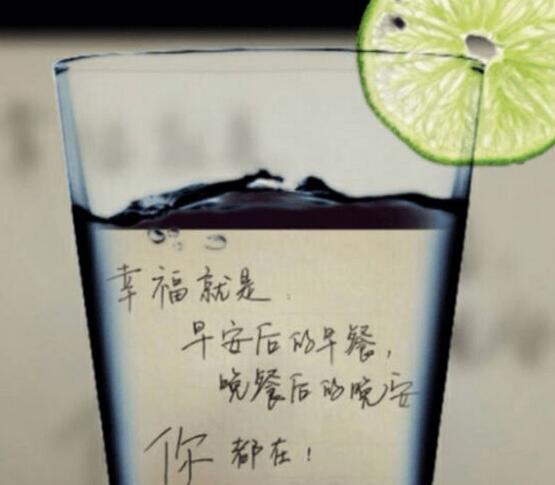 幸福就是
早安后的早餐，
晚餐后的晚安
你都在！